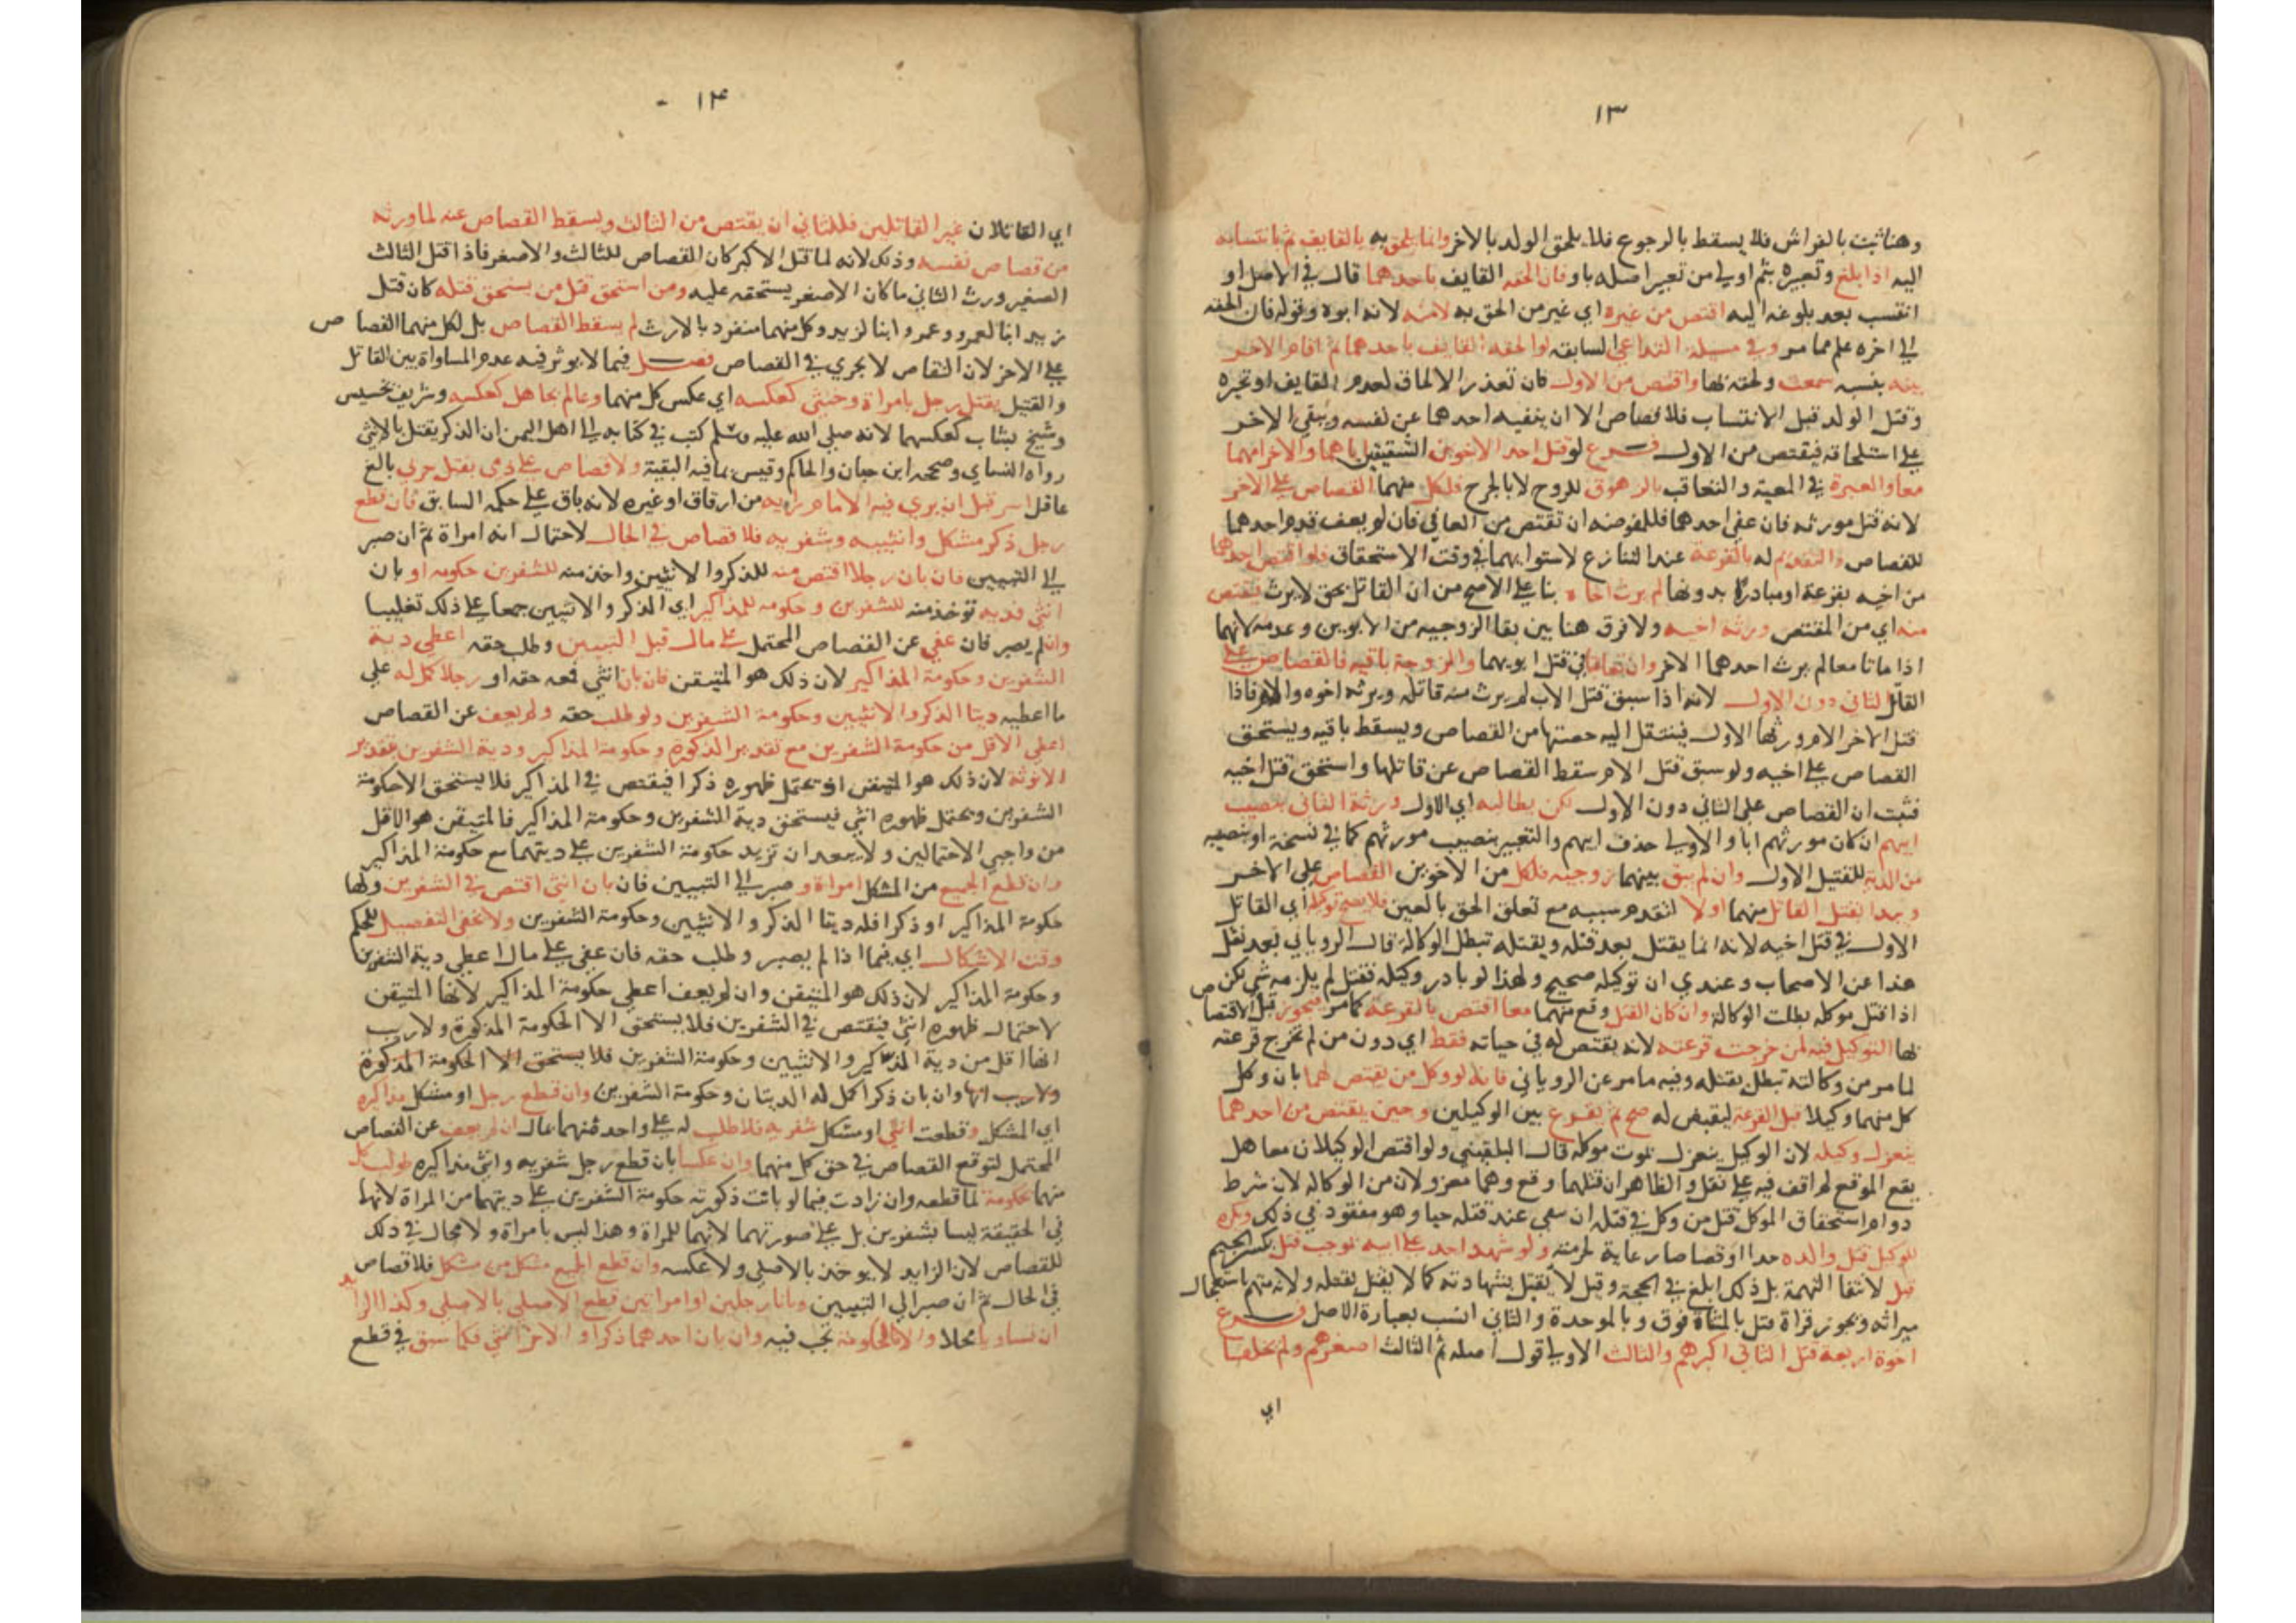 ١٣
وهنا ثبت بالفراش فلا يسقط بالرجوع فلا يلحق الولد بالاخر وانما يلحق به بالقايف ثم بانتسابه
اليه اذا بلغ وتعبيره بثم اولي من تعبير اصله باو فان الحقه القايف باحدهما قال في الاصل او
انتسب بعد بلوغه اليه اقتص من غيره اي غير من الحق به لامنه لانه ابوه وقوله فان الحقه
الي اخره علم مما مر وفي مسيلة التداعي السابقه لو الحقه القايف باحدهما ثم اقام الاخر
بينه بنسبه سمعت ولحقه بها واقتص من الاول فان تعذر الالحاق لعدم القايف او تحيره
وقتل الولد قبل الانتساب فلا قصاص الا ان ينفيه احدهما عن نفسه ويبقي الاخر
علي استلحاقه فيقتص من الاول فرع لو قتل احد الاخوين الشقيقين اباهما والاخر امهما
معا والعبرة في المعية والتعاقب بالزهوق للروح لا بالجرح فلكل منهما القصاص علي الاخر
لانه قتل مورثه فان عفي احدهما فللمعفو عنه ان يقتص من العافي فان لم يعف قدم احدهما
للقصاص والتقديم له بالقرعة عند التنازع لاستوايهما في وقت الاستحقاق فلو اقتص احدهما
من اخيه بقرعة او مبادرة بدونها لم يرث اخاه بنا علي الاصح من ان القاتل بحق لا يرث يقتص
منه اي من المقتص ورثة اخيه ولا فرق هنا بين بقا الزوجيه من الابوين وعدمه لانهما
اذا ماتا معا لم يرث احدهما الاخر وان تعاقبا في قتل ابويهما والزوجة باقيه فالقصاص علي
القاتل الثاني دون الاول لانه اذا سبق قتل الاب لم يرث منه قاتله ويرثه اخوه والام فاذا
قتل الاخر الام ورثها الاول فينتقل اليه حصتها من القصاص ويسقط باقيه ويستحق
القصاص علي اخيه ولو سبق قتل الام سقط القصاص عن قاتلها واستحق قتل اخيه
فثبت ان القصاص علي الثاني دون الاول لكن يطالبه اي الاول ورثة الثاني بنصيب
ابيهم ان كان مورثهم ابا والاولي حذف ابيهم والتعبير بنصيب مورثهم كما في نسخة او بنصيبه
من الدية للقتيل الاول وان لم تبق بينهما زوجيه فلكل من الاخوين القصاص علي الاخر
ويبدا بقتل القاتل منهما اولا لتقدم سببه مع تعلق الحق بالعين فلا يصح توكيله اي القاتل
الاول في قتل اخيه لانه انما يقتل بعد قتله وبقتله تبطل الوكالة قال الروياني بعد نقل
هذا عن الاصحاب وعندي ان توكيله صحيح ولهذا لو بادر وكيله فقتل لم يلزمه شي لكن
اذا قتل موكله بطلت الوكالة وان كان القتل وقع منهما معا اقتص بالقرعة كما مر فيجوز قبل الاقتصاص
لها التوكيل فيه لمن خرجت قرعته لانه يقتص له في حياته فقط اي دون من لم تخرج قرعته
لما مر من وكالته تبطل بقتله وفيه ما مر عن الروياني فانه لو وكل من يقتص لهما بان وكل
كل منهما وكيلا قبل القرعة ليقبض له صح ثم يقرع بين الوكيلين وحين يقتص من احدهما
ينعزل وكيله لان الوكيل ينعزل بموت موكله قال البلقيني ولو اقتص الوكيلان معا هل
يقع الموقع لم اقف فيه علي نقل والظاهر ان قتلهما وقع وهما معزولان من الوكاله لان شرط
دوام استحقاق الموكل قتل من وكل في قتله ان يبقي عند قتله حيا وهو مفقود في ذلك ويكره
للوكيل قتل والده حدا او قصاصا رعاية لحرمته ولو شهد احد علي ابيه بموجب قتل بكسر الجيم
قبل لانتفا التهمة بل ذلك ابلغ في الحجة وقيل لا يقبل بشهادته كما لا يقتل بقتله ولانه متهم باستعجال
ميراثه ويجوز قراة قتل بالمثناة فوق وبالموحدة والثاني انسب بعبارة الاصل فرع
اخوة اربعة قتل الثاني اكبرهم والثالث الاولي قول اصله ثم الثالث اصغرهم ولم يخلفا
اي
١٤
اي القاتلان غير القاتلين فللثاني ان يقتص من الثالث ويسقط القصاص عنه لما ورثه
من قصاص نفسه وذلك لانه لما قتل الاكبر كان القصاص للثالث والاصغر فاذا قتل الثالث
الصغير ورث الثاني ما كان الاصغر يستحقه عليه ومن استحق قتل من يستحق قتله كان قتل
زيد ابنا لعمرو وعمرو ابنا لزيد وكل منهما منفرد بالارث لم يسقط القصاص بل لكل منهما القصاص
علي الاخر لان التقاص لا يجري في القصاص فصل فيما لا يوثر فيه عدم المساواة بين القاتل
والقتيل يقتل رجل بامراة وخنثي كعكسه اي عكس كل منهما وعالم بجاهل كعكسه وشريف بخسيس
وشيخ بشاب كعكسهما لانه صلي الله عليه وسلم كتب في كتابه الي اهل اليمن ان الذكر يقتل بالانثي
رواه النساي وصححه ابن حبان والحاكم وقيس بما فيه البقية ولا قصاص علي ذمي بقتل حربي بالغ
عاقل اسر قبل ان يري فيه الامام رايه من ارقاق او غيره لانه باق علي حكمه السابق فان قطع
رجل ذكر مشكل وانثييه وشفريه فلا قصاص في الحال لاحتمال انه امراة ثم ان صبر
الي التبيين فان بان رجلا اقتص منه للذكر والانثيين واخذ منه للشفرين حكومه او بان
انثي فديه توخذ منه للشفرين وحكومه للمذاكير اي الذكر والانثيين جمعا علي ذلك تغليبا
وان لم يصبر فان عفي عن القصاص المحتمل علي مال قبل التبيين وطلب حقه اعطي دية
الشفرين وحكومة المذاكير لان ذلك هو المتيقن فان بان انثي فمعه حقه او رجلا كمل له علي
ما اعطيه ديتا الذكر والانثيين وحكومة الشفرين ولو طلب حقه ولم يعف عن القصاص
اعطي الاقل من حكومة الشفرين مع تقدير الذكوره وحكومة المذاكير ودية الشفرين بتقدير
الانوثة لان ذلك هو المتيقن اذ يحتمل ظهوره ذكرا فيقتص في المذاكير فلا يستحق الا حكومة
الشفرين ويحتمل ظهوره انثي فيستحق دية الشفرين وحكومة المذاكير فالمتيقن هو الاقل
من واجبي الاحتمالين ولا يبعد ان تزيد حكومة الشفرين علي ديتهما مع حكومة المذاكير
وان قطع الجميع من المشكل امراة وصبر الي التبيين فان بان انثي اقتص في الشفرين ولها
حكومة المذاكير او ذكرا فله ديتا الذكر والانثيين وحكومة الشفرين ولا نخفي التفصيل للحكم
وقت الاشكال اي فيما اذا لم يصبر وطلب حقه فان عفي علي مال اعطي دية الشفرين
وحكومة المذاكير لان ذلك هو المتيقن وان لم يعف اعطي حكومة المذاكير لانها المتيقن
لاحتمال ظهوره انثي فيقتص في الشفرين فلا يستحق الا الحكومة المذكورة ولا ريب
انها اقل من دية المذاكير والانثيين وحكومة الشفرين فلا يستحق الا الحكومة المذكورة
ولا ريب انها وان بان ذكرا كمل له الديتان وحكومة الشفرين وان قطع رجل او مشكل مذاكيره
اي المشكل وقطعت انثي او مشكل شفريه فلا طلب له علي واحد منهما بمال ان لم يعف عن القصاص
المحتمل لتوقع القصاص في حق كل منهما وان عكسا بان قطع رجل شفريه وانثي مذاكيره طولب كل
منهما بحكومة لما قطعه وان زادت فيما لو بانت ذكورته حكومة الشفرين علي ديتهما من المراة لانها
في الحقيقة ليسا بشفرين بل علي صورتهما لانهما للمراة وهذا ليس بامراة ولا مجال في ذلك
للقصاص لان الزايد لا يوخذ بالاصلي ولا عكسه وان قطع الجميع مشكل من مشكل فلا قصاص
في الحال ثم ان صبر الي التبيين وبانا رجلين او امراتين قطع الاصلي بالاصلي وكذا الزايد
ان تساويا محلا والا فالحكومة تجب فيه وان بان احدهما ذكرا والاخر انثي فكما سبق في قطع